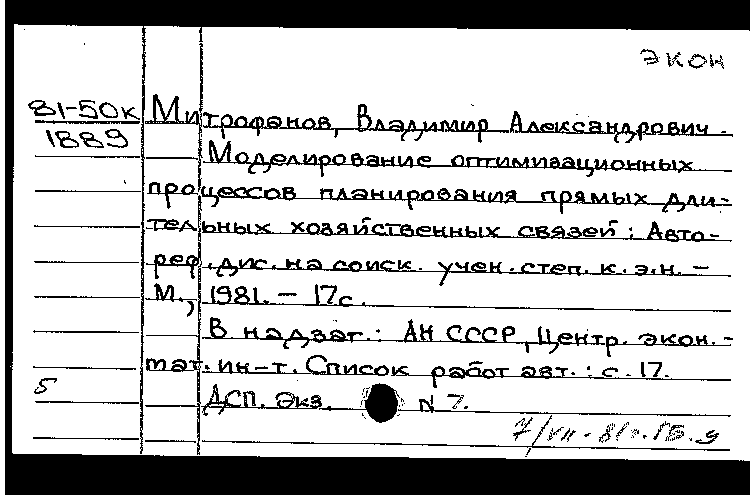 ЭКОН
81-50к Митрофанов, Владимир Александрович.
1889 Моделирование оптимизационных
процессов планирования прямых дли-
тельных хозяйственных связей: Авто-
реф. дис. на соиск. учен. степ. к.э.н. -
М., 1981. - 17с.
В надзаг.: АН СССР, Центр. экон.-
мат. ин-т. Список работ авт.: с. 17.
5 ДСП. Экз. N 7.
7/VII-81г.